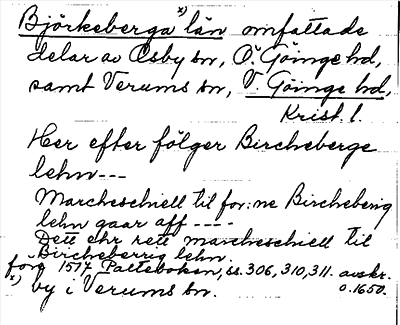 Björkeberga x) län omfattade
delar av Osby sn, Ö. Göinge hd,
samt Verums sn, V. Göinge hd,
Krist. l.
Her efter fölger Bircheberge
lehn ---
Marcheschiell til for:ne Bircheberig
lehn gaar aff ----
Dett ehr rett marcheschiell til
Bircheberrig lehn.
före 1517 Palteboken, ss. 306, 310, 311. avskr.
o. 1650.
x) by i Verums sn.